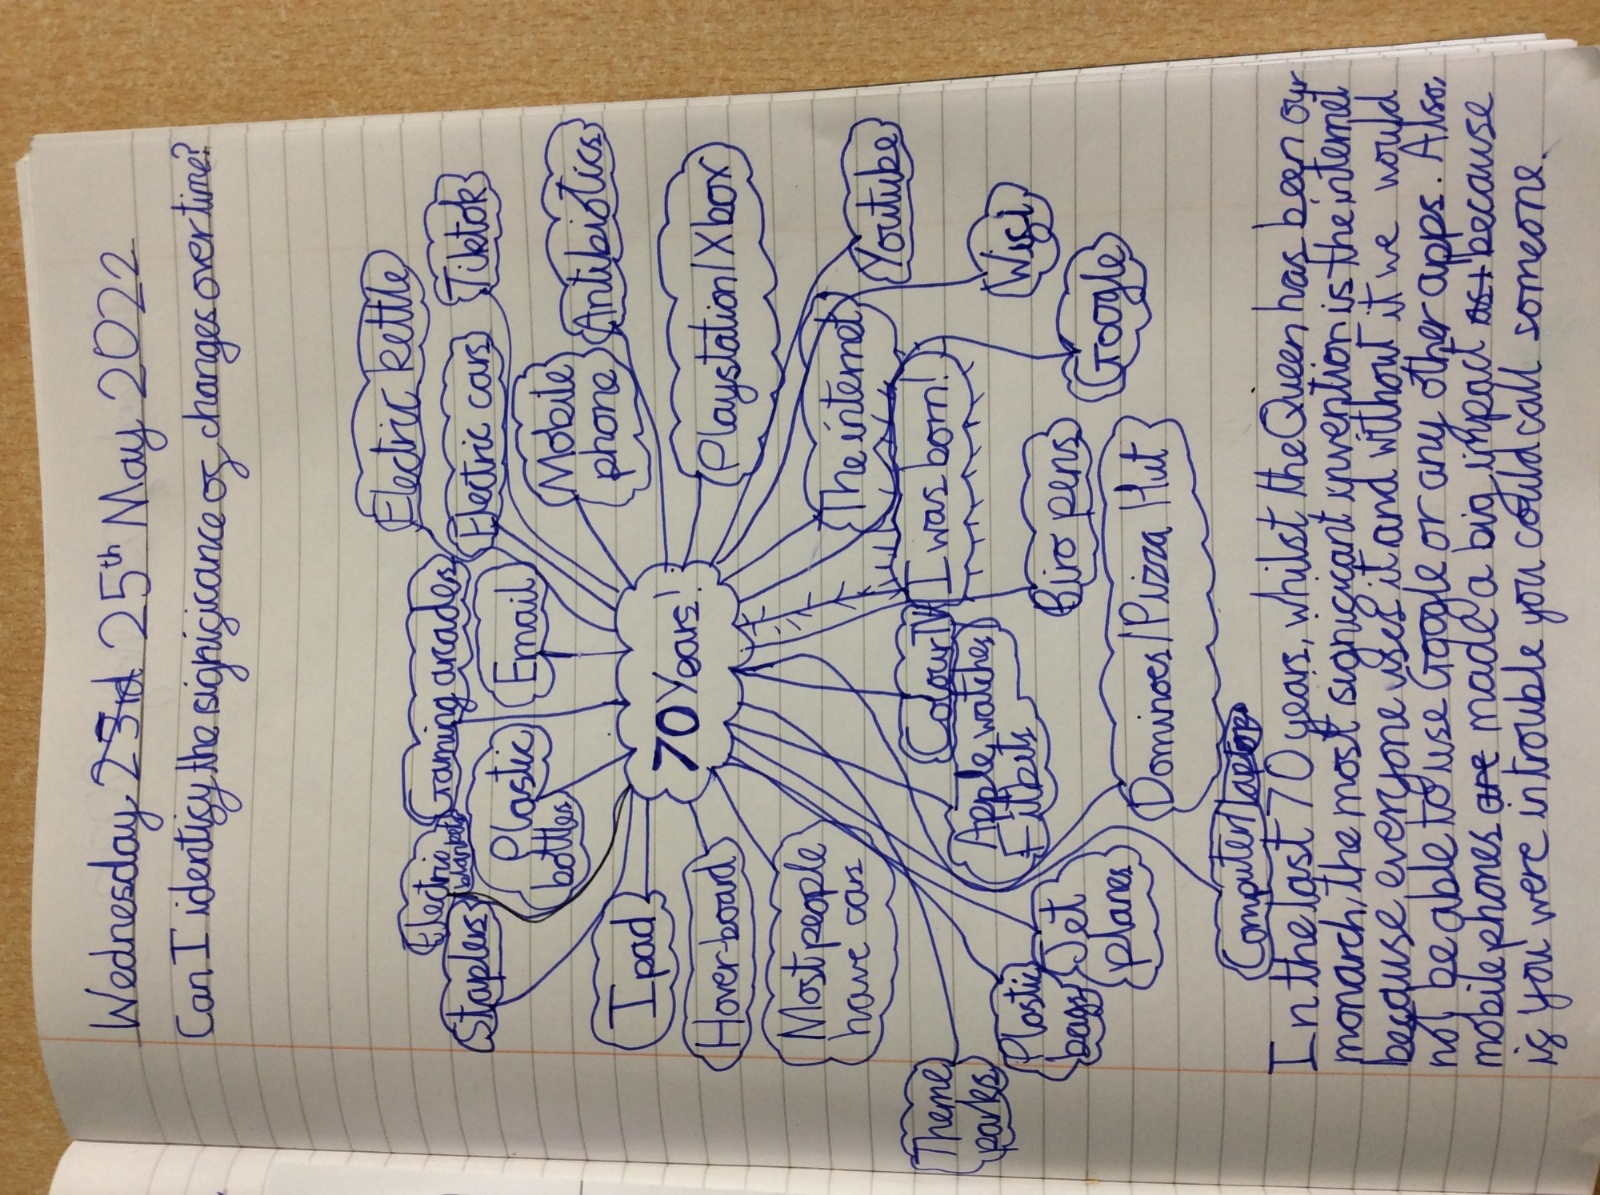 Wednesday 23rd 25th May 2022
Can I identify the significance of changes over time?
Electric kettle
Tiktok
Electric cars
Antibiotics
Mobile
phone
Gaming arcades
Email
Electric
blankets
Plastic
bottles
Staplers
Playstation/Xbox
70 Years!
Ipad
Hover-board
Most people
have cars
The internet
Youtube
Wifi
Google
I was born!
Colour TV
Biro pens
Apple watches
Fitbits
Dominoes/Pizza Hut
Theme
parks
Plastic
bags
Jet
planes
Computer/laptop
In the last 70 years, whilst the Queen has been our
monarch, the most significant invention is the internet
because everyone uses it and without it we would
not be able to use Google or any other apps. Also,
mobile phones are made a big impact as t because
if you were in trouble you could call someone.